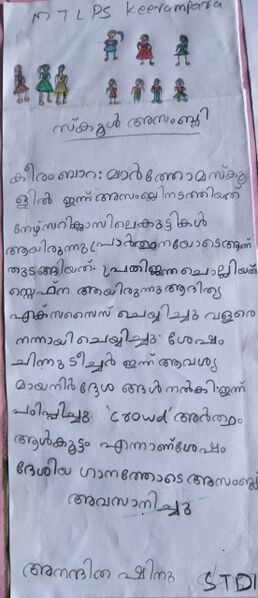 MTLPS Keerampara
സ്കൂൾ അസംബ്ലി
കീരംബാറ: മാർത്തോമ സ്കൂ
ളിൽ ഇന്ന് അസംബ്ലി നടത്തിയത്
നേഴ്സറി ക്ലാസിലെ കുട്ടികൾ
ആയിരുന്നു പ്രാർത്ഥനയോടെ ആണ്
തുടങ്ങിയത്. പ്രതിജ്ഞ ചൊല്ലിയത്
സ്റ്റെഫ്ന ആയിരുന്നു ആദിത്യ
എക്സസൈസ് ചെയ്യിച്ചു വളരെ
നന്നായി ചെയ്യിച്ചു. ശേഷം
ചിന്നു ടീച്ചർ ഇന്ന് ആവശ്യ
മായ നിർദ്ദേശ ങ്ങൾ നൽകി. ഇന്ന്
പഠിപ്പിച്ചു 'crowd' അർത്ഥം
ആൾകൂട്ടം എന്നാണ് ശേഷം
ദേശിയ ഗാനത്തോടെ അസംബ്ലി
അവസാനിച്ചു
അനന്ദിത ഷിനു STDI